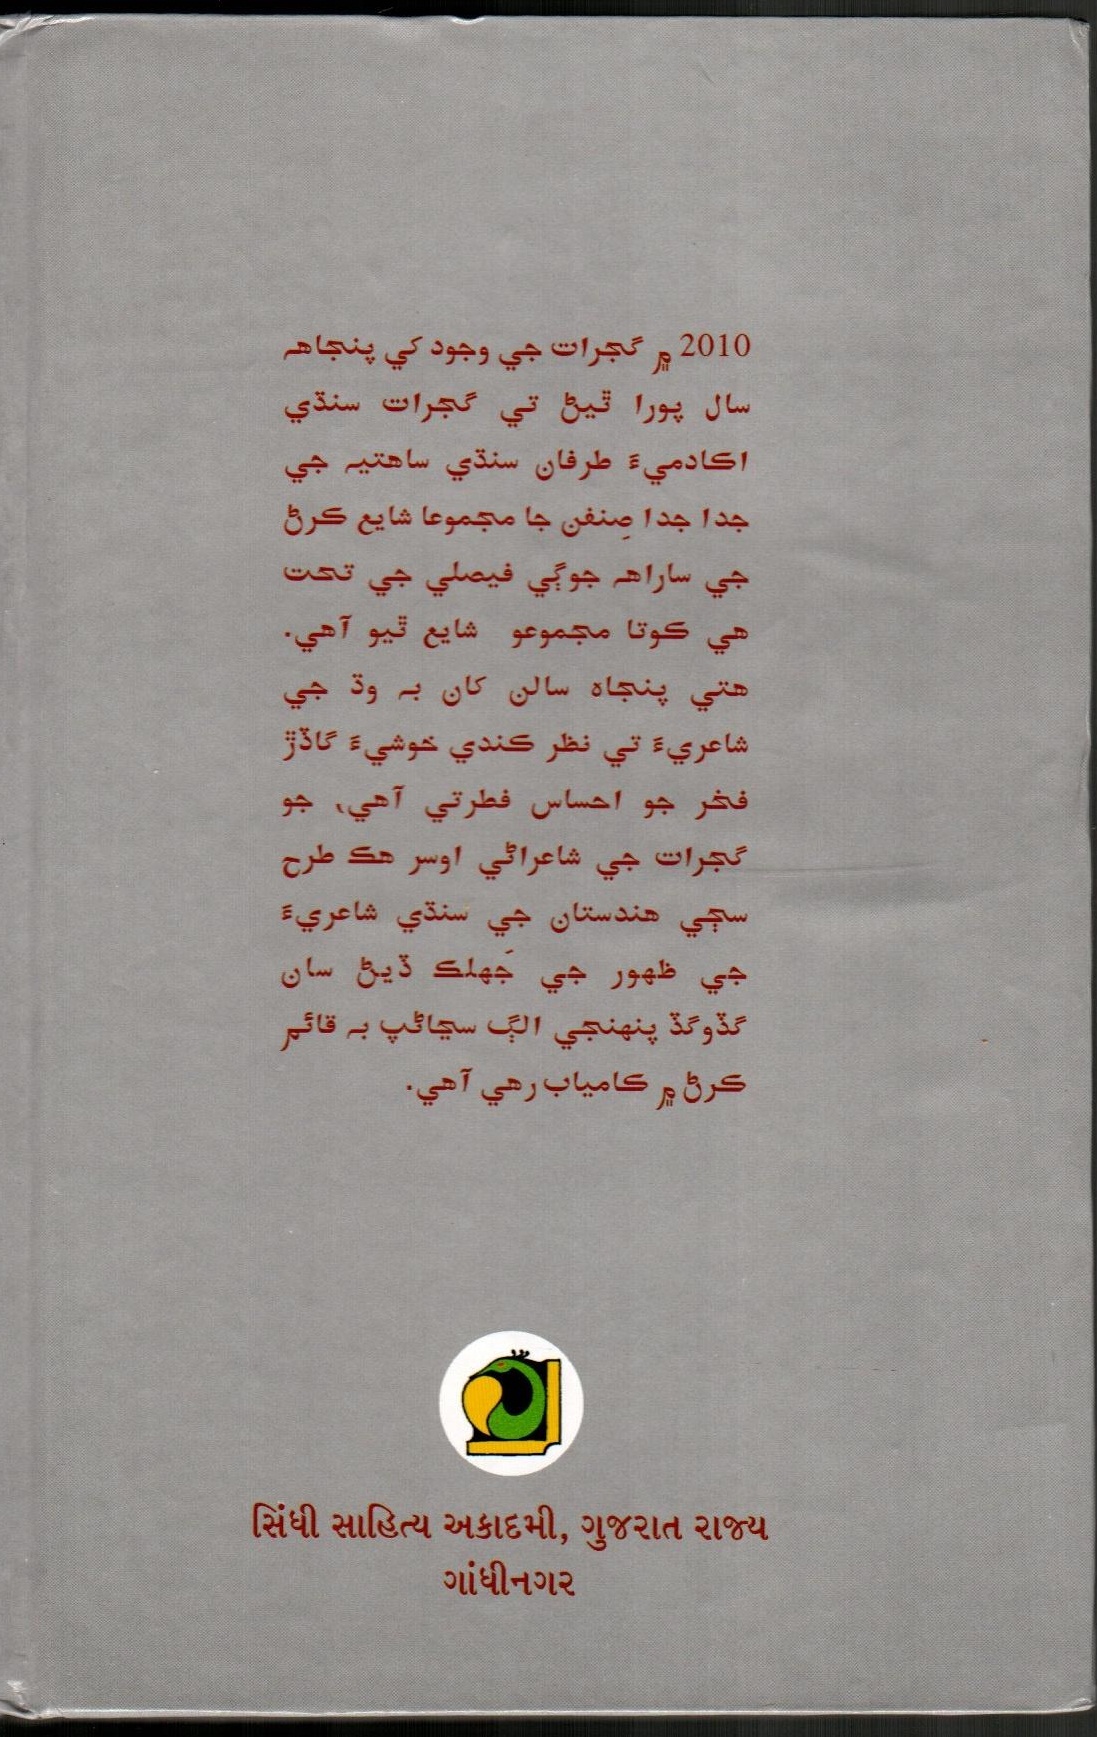 2010 ۾ گجرات جي وجود کي پنجاهہ
سال پورا ٿيڻ تي گجرات سنڌي
اڪادميءَ طرفان سنڌي ساهتيہ جي
جدا جدا صِنفن جا مجموعا شايع ڪرڻ
جي ساراهہ جوڳي فيصلي جي تحت
هي ڪوتا مجموعو شايع ٿيو آهي.
هتي پنجاه سالن کان بہ وڌ جي
شاعريءَ تي نظر ڪندي خوشيءَ گاڏڙ
فخر جو احساس فطرتي آهي، جو
گجرات جي شاعراڻي اوسر هڪ طرح
سڄي هندستان جي سنڌي شاعريءَ
جي ظهور جي جَهلڪ ڏيڻ سان
گڏوگڏ پنهنجي الڳ سڃاڻپ بہ قائم
ڪرڻ ۾ ڪامياب رهي آهي.
સિંધી સાહિત્ય અકાદમી, ગુજરાત રાજ્ય
ગાંધીનગર